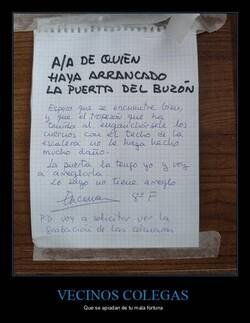 A/A DE QUIÉN
HAYA ARRANCADO
LA PUERTA DEL BUZÓN
Espero que se encuentre bien,
y que el tropezón que ha
tenido al engancharsele los
cuernos con el techo de la
escalera no le haya hecho
mucho daño.
La puerta la tengo yo y voy
a arreglarla
Lo suyo no tiene arreglo
8º F
P.D. voy a solicitar ver la
grabación de las cámaras
VECINOS COLEGAS
Que se apiadan de tu mala fortuna